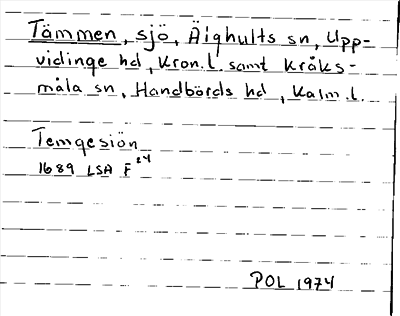 Tämmen, sjö, Älghults sn, Upp-
vidinge hd, Kron.l. samt Kråks-
måla sn, Handbörds hd, Kalm.l.
Temgesiön
1689 LSA F24
POL 1974